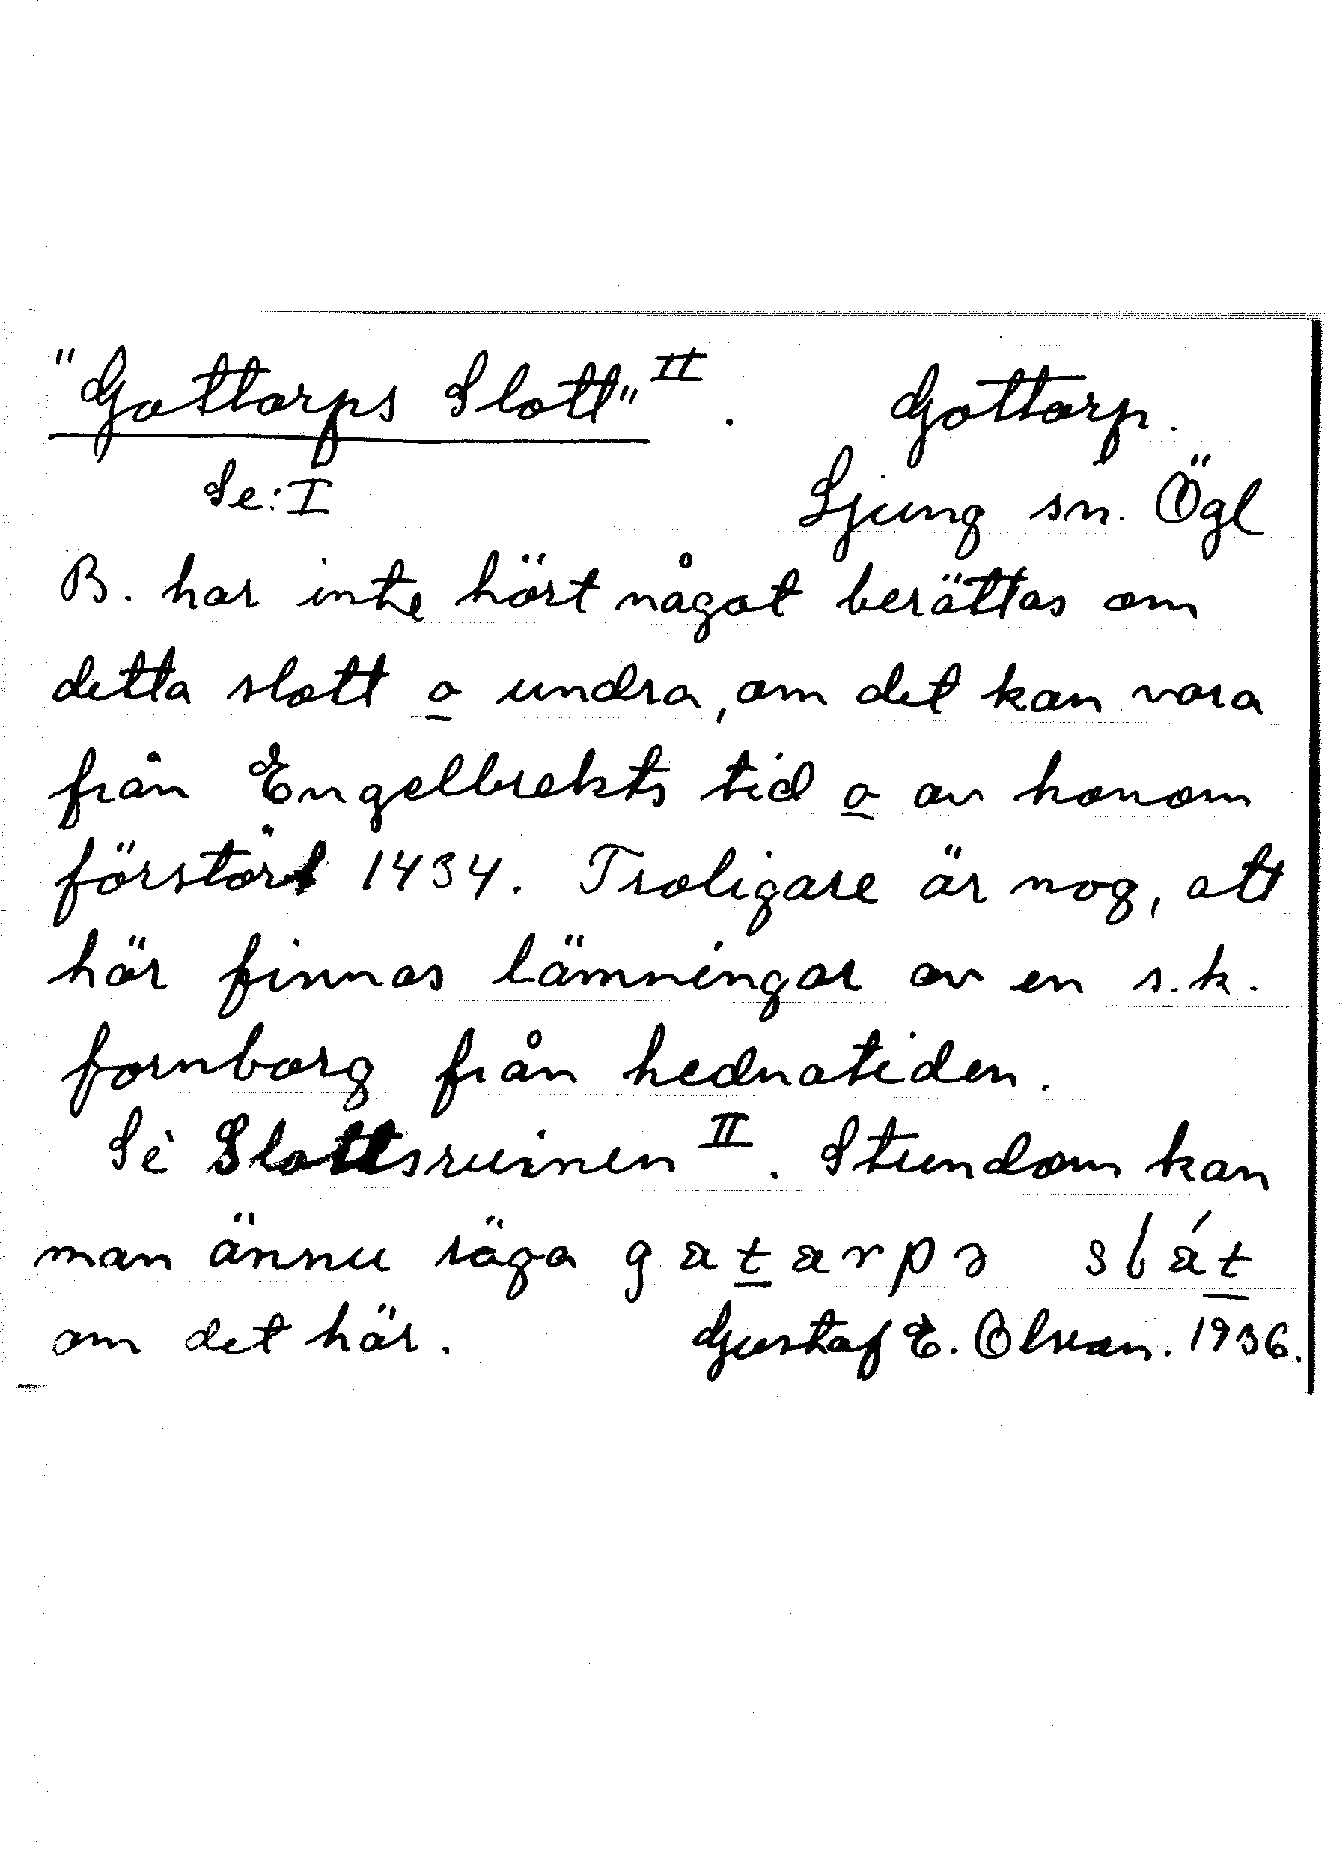 "Gottorps Slott" II. Gottorp.
Se: I Ljung sn. Ögl
B. har inte hört något berättas om
detta slott o undra, om det kan vara
från Engelbrekts tid o av honom
förstört 1434. Troligare är nog, att
här finnas lämningar av en s.k.
fornborg från hednatiden.
Se Slottsruinen II. Stundom kan
man ännu säga gatarpə slát
om det här. Gustaf E. Olsson. 1936.